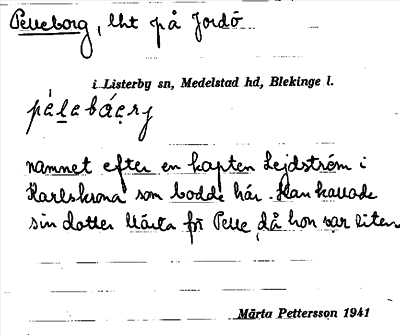 Pelleborg, lht på Jordö
i Listerby sn, Medelstad hd, Blekinge l.
pèlabáerj
namnet efter en kapten Lejdström i
Karlskrona som bodde här. Han kallade
sin dotter Märta för Pelle, då hon var liten
Märta Pettersson 1941